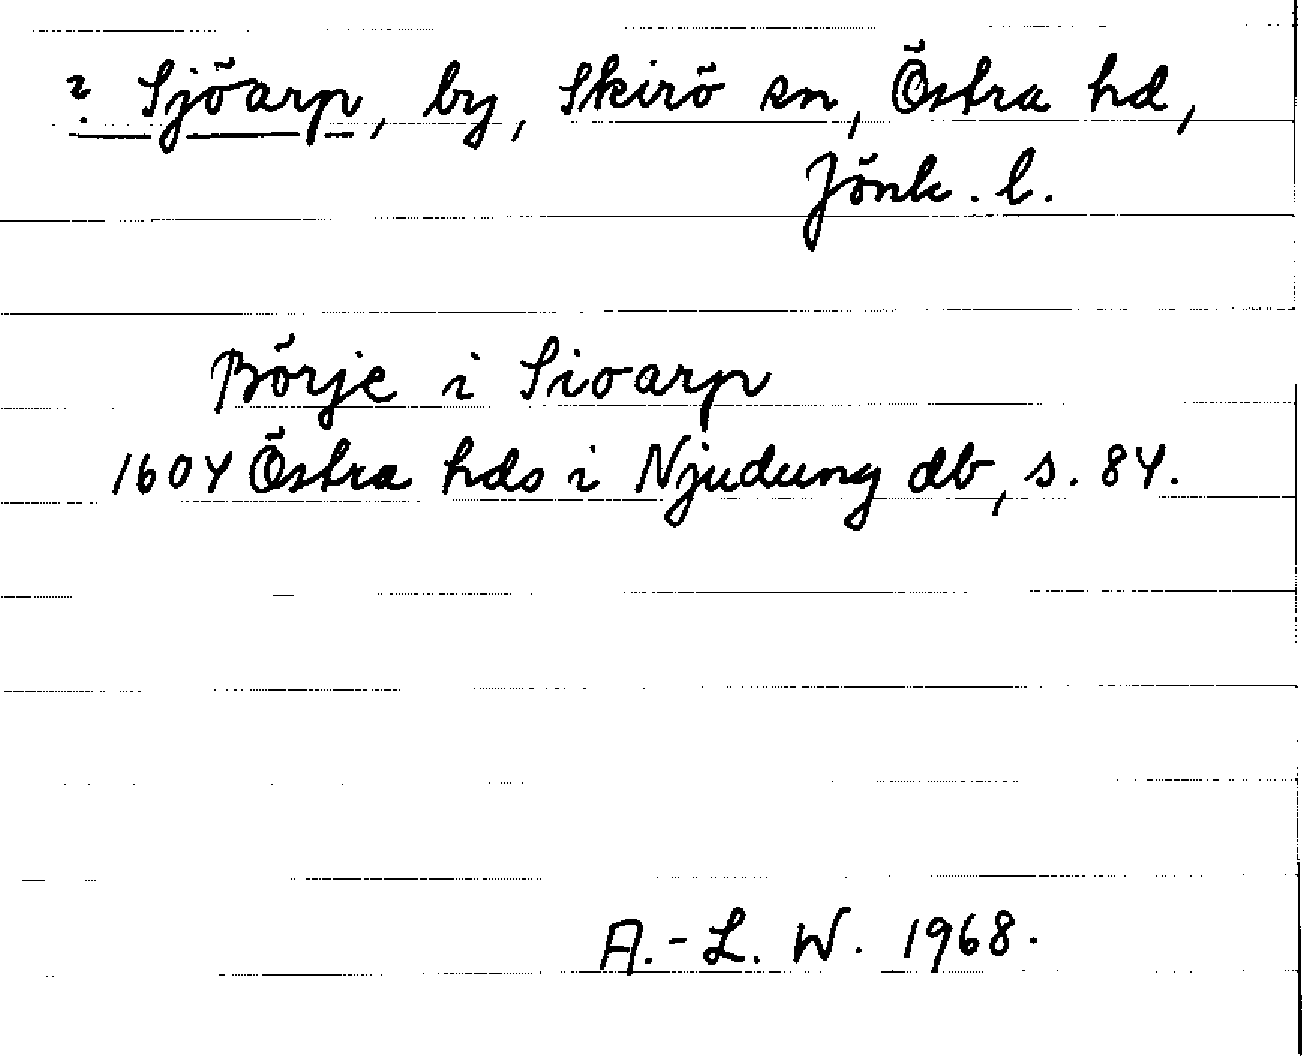 ? Sjöarp, by, Skirö sn, Östra hd,
Jönk. l.
Börje i Sioarp
1604 Östra hds i Njudung db, s. 84.
A.-L. W. 1968.